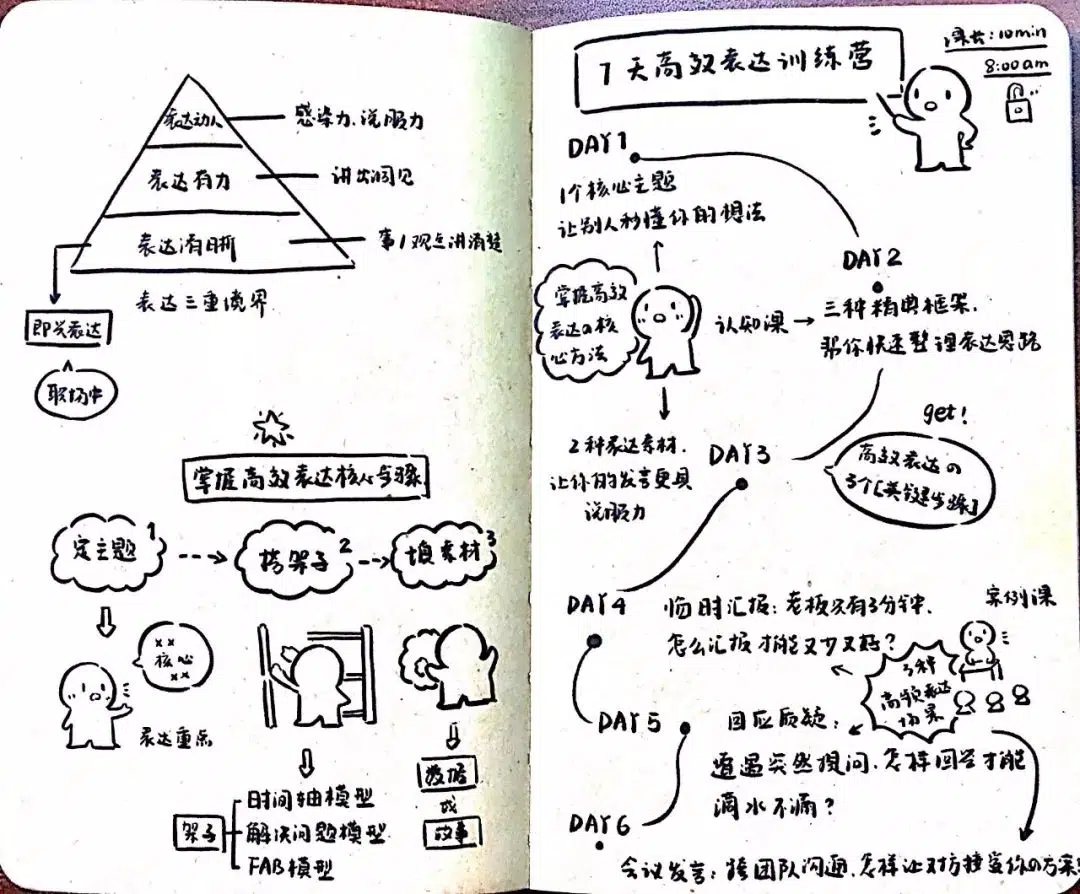 表达动人
感染力、说服力
表达有力
讲出洞见
表达清晰
事/观点讲清楚
表达三重境界
即兴表达
职场中
掌握高效表达核心步骤
定主题 1
搭架子 2
填素材 3
××
核心
××
表达重点
架子
时间轴模型
解决问题模型
FAB模型
数据
或
故事
7天高效表达训练营
课长:10min
8:00am
DAY1
1个核心主题
让别人秒懂你的想法
DAY2
三种精典框架.
帮你快速整理表达思路
掌握高效
表达の核
心方法
认知课
DAY3
2种表达素材.
让你的发言更具
说服力
get!
高效表达の
3个[关键步骤]
DAY4
临时汇报:老板只有3分钟.
怎么汇报才能又少又好?
案例课
3种
高频表达
场景
DAY5
回应质疑:
遭遇突然提问.怎样回答才能
滴水不漏?
DAY6
会议发言:跨团队沟通.怎样让对方接受你の方案